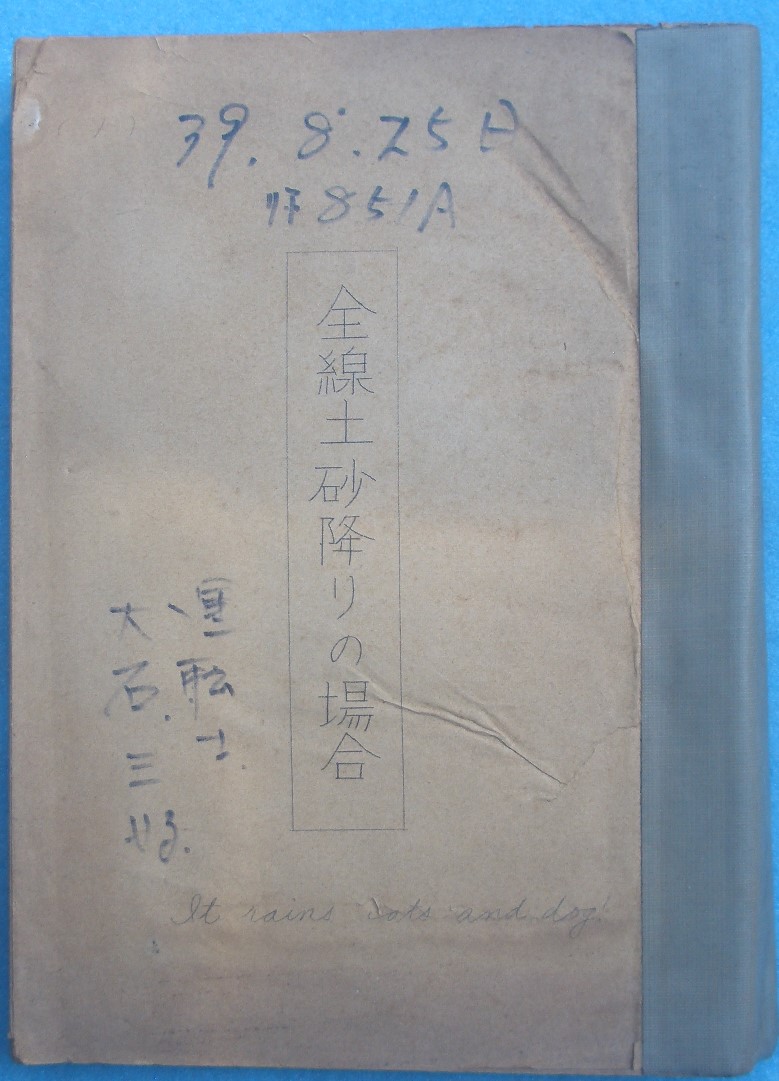 39.8.25日
851A
全線土砂降りの場合
運転士
大石三好
It rains cats and dog!